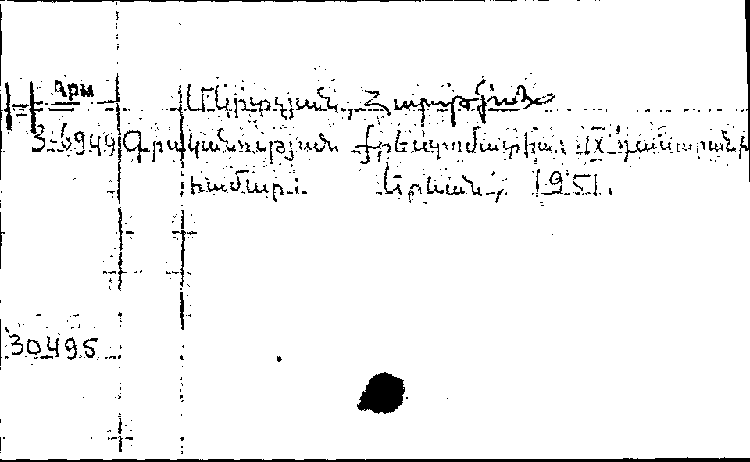 Арм
Մկրտչյան, Հարություն
3-6949 Գրականության քրեստոմատիա IX դասարանի
համար: Երևան, 1951.
30495